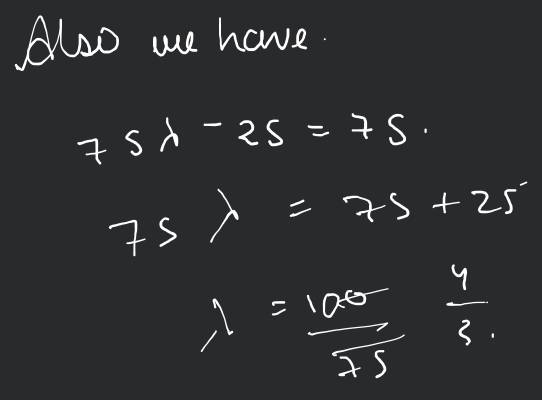 Also we have.
75λ - 25 = 75.
75 λ = 75 + 25
λ = 100/75 4/3.